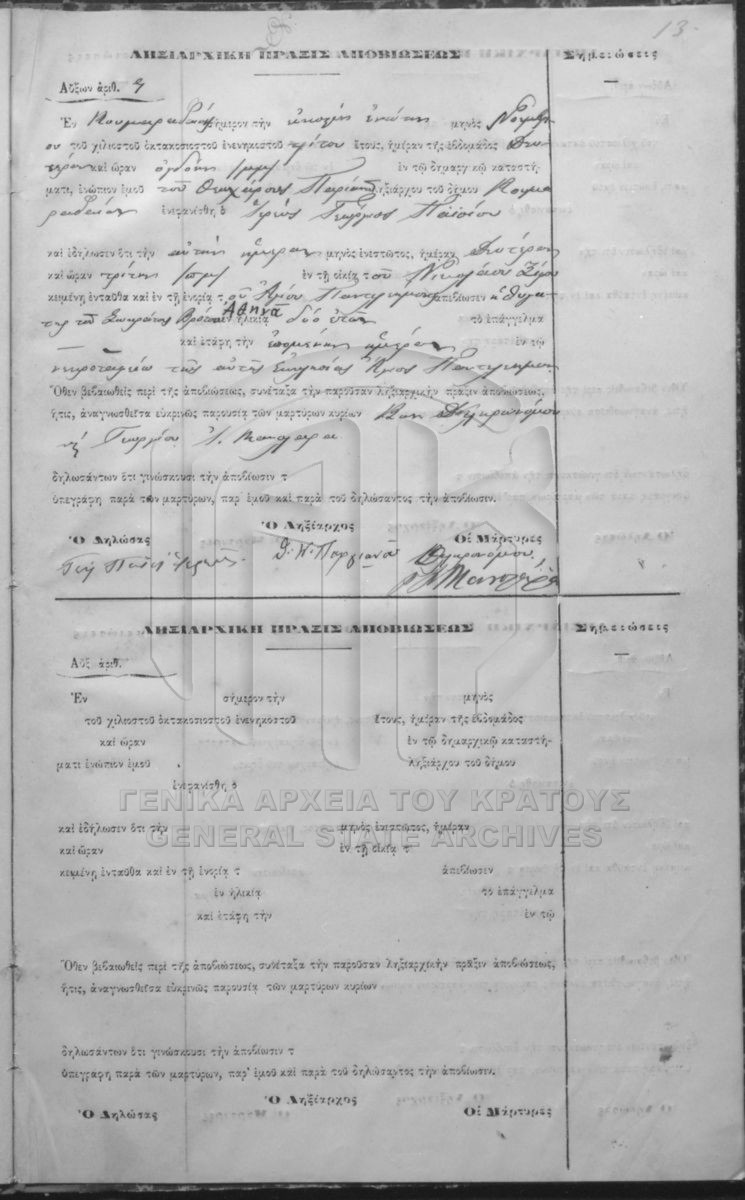 13
ΛΗΞΙΑΡΧΙΚΗ ΠΡΑΞΙΣ ΑΠΟΒΙΩΣΕΩΣ
Σημειώσεις
Αὔξων ἀριθ.
Ἐν σήμερον τὴν εἰκοστὴν ἐνάτην μηνὸς
ου τοῦ χιλιοστοῦ ὀκτακοσιοστοῦ ἐνενηκοστοῦ τρίτου ἔτους, ἡμέραν τῆς ἑβδομάδος Δευ
τέραν καὶ ὥραν ὀγδόην ἐν τῷ δημαρχικῷ καταστή-
ματι, ἐνώπιον ἐμοῦ τοῦ ληξιάρχου τοῦ δήμου Κουμα
ραδαίων ἐνεφανίσθη ὁ ἱερεὺς Γεώργιος
καὶ ἐδήλωσεν ὅτι τὴν αὐτὴν ἡμέραν μηνὸς ἐνεστῶτος, ἡμέραν Δευτέραν
καὶ ὥραν τρίτην ἐν τῇ οἰκίᾳ τοῦ Νικολάου
κειμένῃ ἐνταῦθα καὶ ἐν τῇ ἐνορίᾳ τοῦ Ἁγίου Παντελεήμονος ἀπεβίωσεν ἡ θυγα-
της τοῦ Ἀθηνᾶ ἐν ἡλικίᾳ δύο ἐτῶν τὸ ἐπάγγελμα
καὶ ἐτάφη τὴν ἑπομένην ἡμέραν ἐν τῷ
νεκροταφείῳ τῆς αὐτῆς Ἐκκλησίας Ἁγίου Παντελεήμονος
Ὅθεν βεβαιωθεὶς περὶ τῆς ἀποβιώσεως, συνέταξα τὴν παροῦσαν ληξιαρχικὴν πρᾶξιν ἀποβιώσεως,
ἥτις, ἀναγνωσθεῖσα εὐκρινῶς παρουσίᾳ τῶν μαρτύρων κυρίων
Γεωργίου
δηλωσάντων ὅτι γινώσκουσι τὴν ἀποβίωσιν τ
ὑπεγράφη παρὰ τῶν μαρτύρων, παρ' ἐμοῦ καὶ παρὰ τοῦ δηλώσαντος τὴν ἀποβίωσιν.
Ὁ Δηλώσας
Ὁ Ληξίαρχος
Οἱ Μάρτυρες
ΛΗΞΙΑΡΧΙΚΗ ΠΡΑΞΙΣ ΑΠΟΒΙΩΣΕΩΣ
Σημειώσεις
Αὔξ ἀριθ.
Ἐν σήμερον τὴν μηνὸς
τοῦ χιλιοστοῦ ὀκτακοσιοστοῦ ἐνενηκοστοῦ ἔτους, ἡμέραν τῆς ἑβδομάδος
καὶ ὥραν ἐν τῷ δημαρχικῷ καταστή-
ματι ἐνώπιον ἐμοῦ ληξιάρχου τοῦ δήμου
ἐνεφανίσθη ὁ
ΓΕΝΙΚΑ ΑΡΧΕΙΑ ΤΟΥ ΚΡΑΤΟΥΣ
GENERAL STATE ARCHIVES
καὶ ἐδήλωσεν ὅτι τὴν μηνὸς ἐνεστῶτος, ἡμέραν
καὶ ὥραν ἐν τῇ οἰκίᾳ τ
κειμένῃ ἐνταῦθα καὶ ἐν τῇ ἐνορίᾳ τ ἀπεβίωσεν
ἐν ἡλικίᾳ τὸ ἐπάγγελμα
καὶ ἐτάφη τὴν ἐν τῷ
Ὅθεν βεβαιωθεὶς περὶ τῆς ἀποβιώσεως, συνέταξα τὴν παροῦσαν ληξιαρχικὴν πρᾶξιν ἀποβιώσεως,
ἥτις, ἀναγνωσθεῖσα εὐκρινῶς παρουσίᾳ τῶν μαρτύρων κυρίων
δηλωσάντων ὅτι γινώσκουσι τὴν ἀποβίωσιν τ
ὑπεγράφη παρὰ τῶν μαρτύρων, παρ' ἐμοῦ καὶ παρὰ τοῦ δηλώσαντος τὴν ἀποβίωσιν.
Ὁ Δηλώσας
Ὁ Ληξίαρχος
Οἱ Μάρτυρες